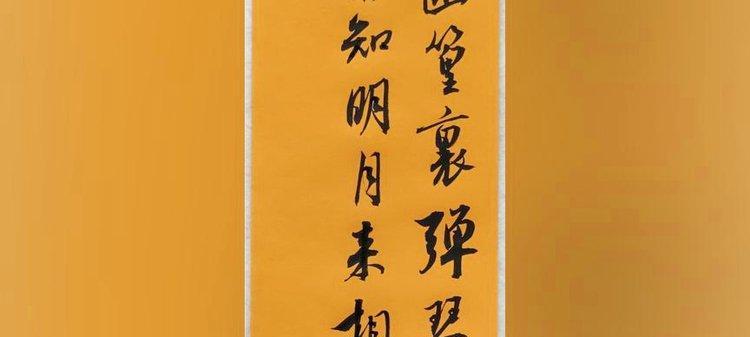 幽篁裏弹琴
知明月来相